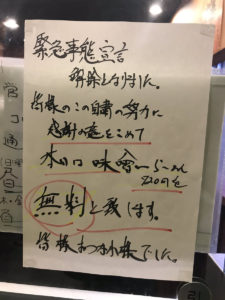 緊急事態宣言
解除となりました。
皆様のこの自粛の努力に
感謝の意をこめて
本日 味噌らーめん
無料と致します。
皆様おつかれ様でした。